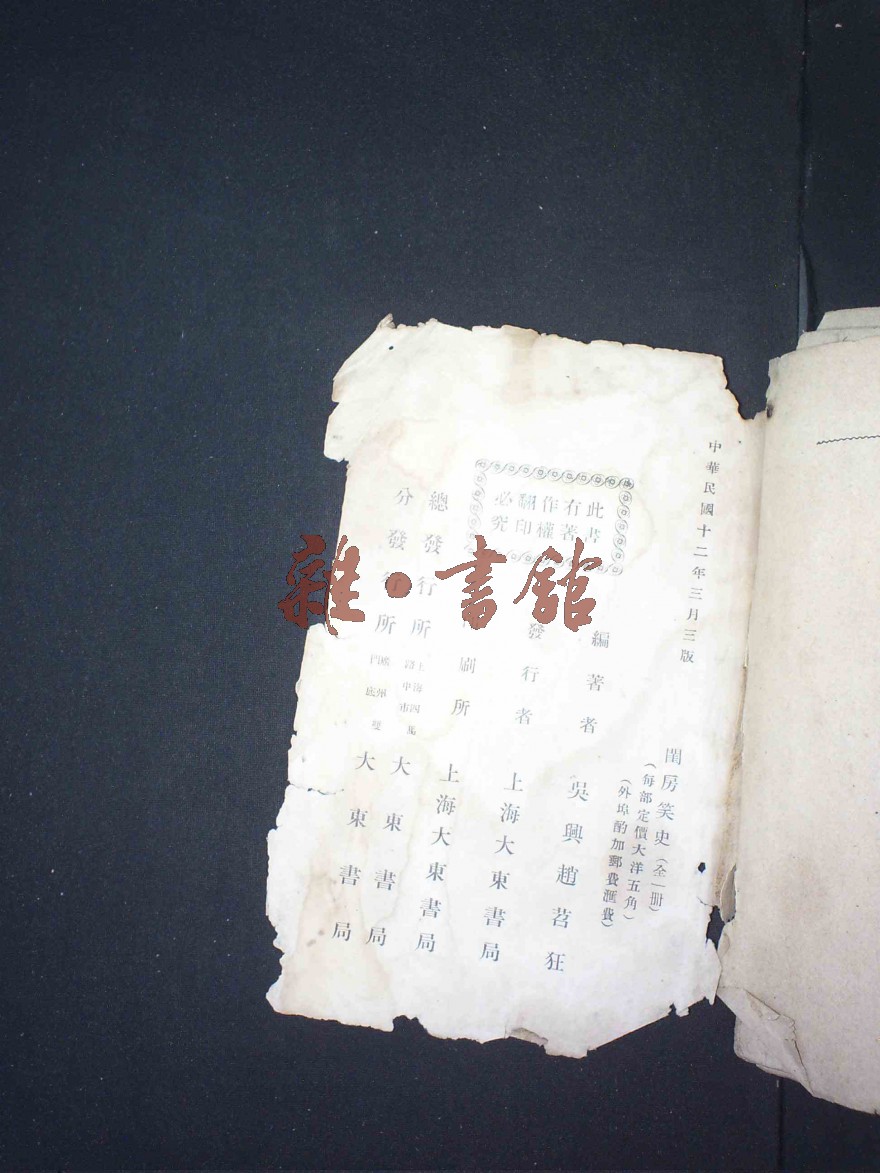 中華民國十二年三月三版
閨房笑史（全一册）
（每部定價大洋五角）
（外埠酌加郵費滙費）
此書
有著
作權
翻印
必究
編著者 吳興趙苕狂
發行者 上海大東書局
刷所 上海大東書局
總發行所 上海四馬路中市 大東書局
分發行所 廣州雙門底 大東書局
雜·書館